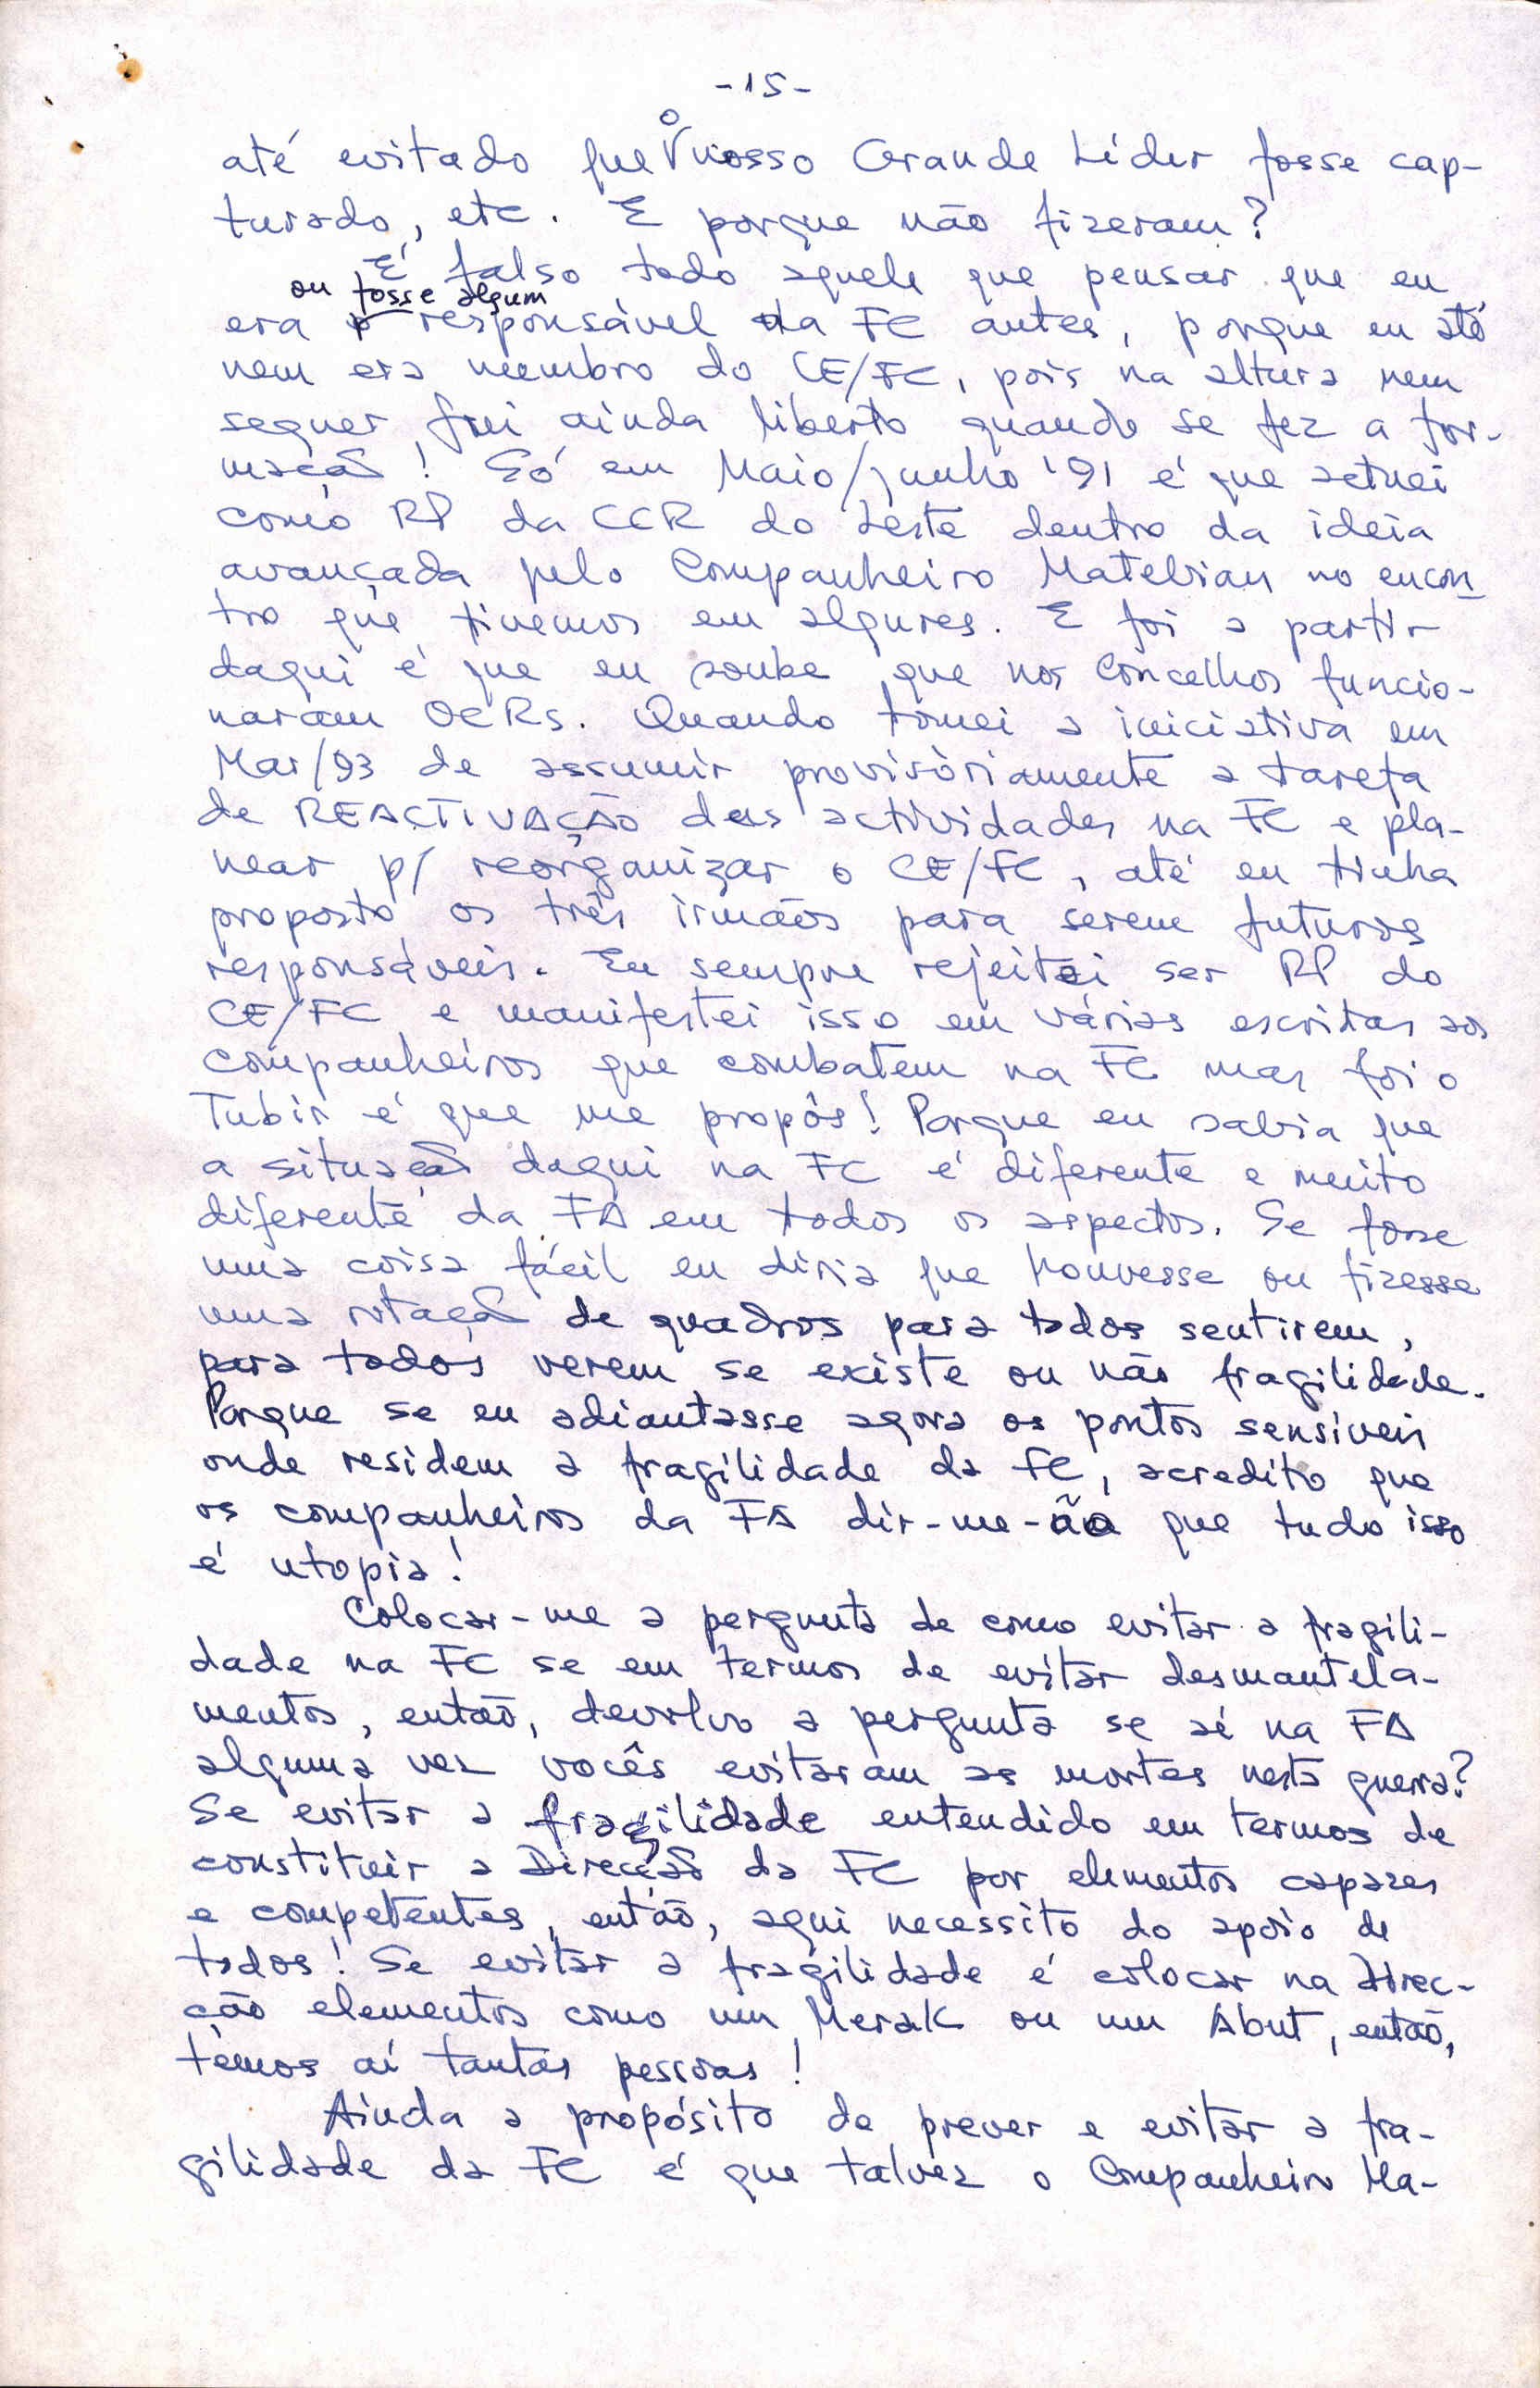 -15-
até evitado que o nosso Grande Líder fosse cap-
turado, etc. E porque não fizeram?
É falso todo aquele que pensar que eu
ou fosse algum
era o responsável da FC antes, porque eu até
nem era membro do CE/FC, pois na altura nem
sequer fui ainda liberto quando se fez a for-
mação! Só em Maio/junho '91 é que actuei
como RP da CCR do Leste dentro da ideia
avançada pelo Companheiro Matebian no encon
tro que tivemos em algures. E foi a partir
daqui é que eu soube que nos Concelhos funcio-
naram OCRs. Quando tomei a iniciativa em
Mar/93 de assumir provisòriamente a tarefa
de REACTIVAÇÃO das actividades na FC e pla-
near p/ reorganizar o CE/FC, até eu tinha
proposto os três irmãos para serem futuros
responsáveis. Eu sempre rejeitei ser RP do
CE/FC e manifestei isso em várias escritas aos
companheiros que combatem na FC mas foi o
Tubir é que me propôs! Porque eu sabia que
a situação daqui na FC é diferente e muito
diferente da FA em todos os aspectos. Se fosse
uma coisa fácil eu diria que houvesse ou fizesse
uma rotação de quadros para todos sentirem,
para todos verem se existe ou não fragilidade.
Porque se eu adiantasse agora os pontos sensíveis
onde residem a fragilidade da FC, acredito que
os companheiros da FA dir-me-ão que tudo isso
é utopia!
Colocar-me a pergunta de como evitar a fragili-
dade na FC se em termos de evitar desmantela-
mentos, então, devolvo a pergunta se aí na FA
alguma vez vocês evitaram as mortes nesta guerra?
Se evitar a fragilidade entendido em termos de
constituir a Direcção da FC por elementos capazes
e competentes, então, aqui necessito do apoio de
todos! Se evitar a fragilidade é colocar na Direc-
ção elementos como um Merak ou um Abut, então,
temos aí tantas pessoas!
Ainda a propósito de prever e evitar a fra-
gilidade da FC é que talvez o Companheiro Ma-